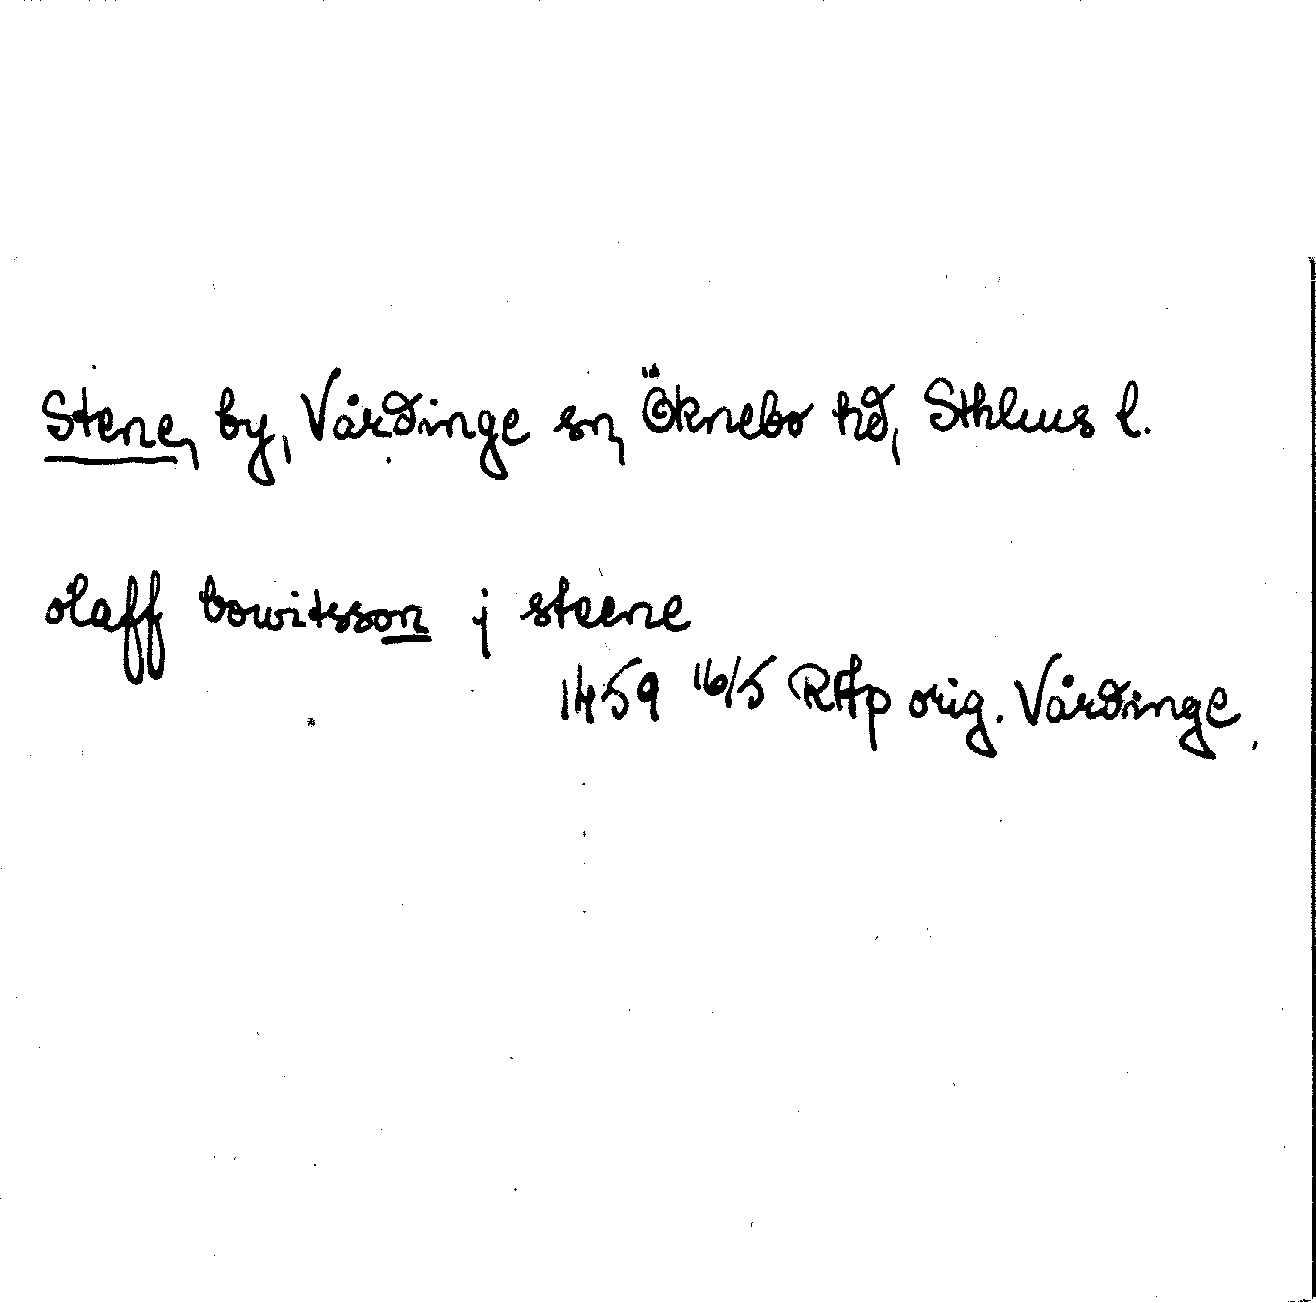 Stene, by, Vårdinge sn, Öknebo hd, Sthlms l.
olaff bowitsson j steene
1459 16/5 RAp orig. Vårdinge.